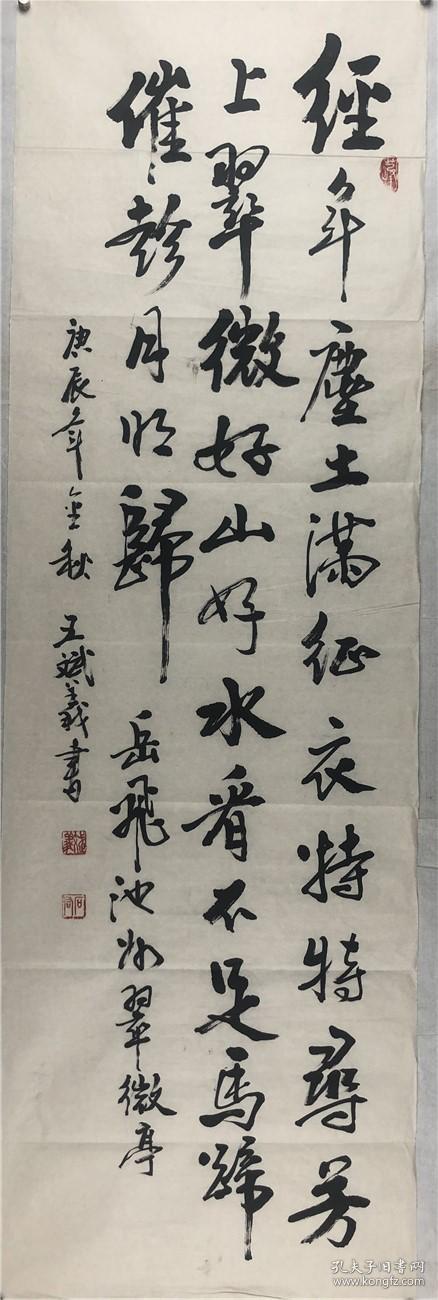 經年塵土滿征衣特特尋芳
上翠微好山好水看不足馬蹄
催趁月明歸
岳飛池州翠微亭
庚辰年金秋 王斌義書
孔夫子旧书网
www.kongfz.com